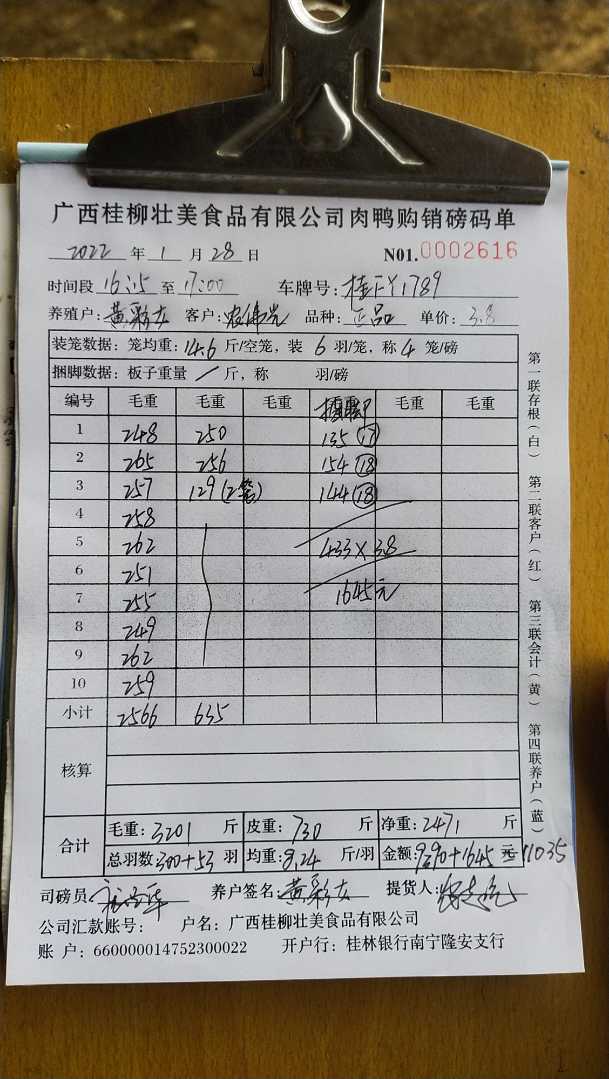 广西桂柳壮美食品有限公司肉鸭购销磅码单
2022 年 1 月 28 日 N01.0002616
时间段 16:15 至 17:00 车牌号: 桂FY1789
养殖户: 黄彩女 客户: 农伟光 品种: 正品 单价: 3.8
装笼数据: 笼均重: 14.6 斤/空笼, 装 6 羽/笼, 称 4 笼/磅
捆脚数据: 板子重量 / 斤, 称 羽/磅
编号 毛重 毛重 毛重 毛重 毛重
1 248 250 135 (17)
2 265 256 154 (18)
3 257 129 (2笼) 144 (18)
4 258
5 262 433×3.8
6 251
7 255 1645元
8 249
9 262
10 259
小计 2566 635
核算
合计
毛重: 3201 斤 皮重: 730 斤 净重: 2471 斤
总羽数 300+53 羽 均重: 8.24 斤/羽 金额: 9390+1645 元 11035
司磅员 养户签名: 黄彩女 提货人:
公司汇款账号: 户名: 广西桂柳壮美食品有限公司
账 户: 660000014752300022 开户行: 桂林银行南宁隆安支行
第一联存根(白) 第二联客户(红) 第三联会计(黄) 第四联养户(蓝)